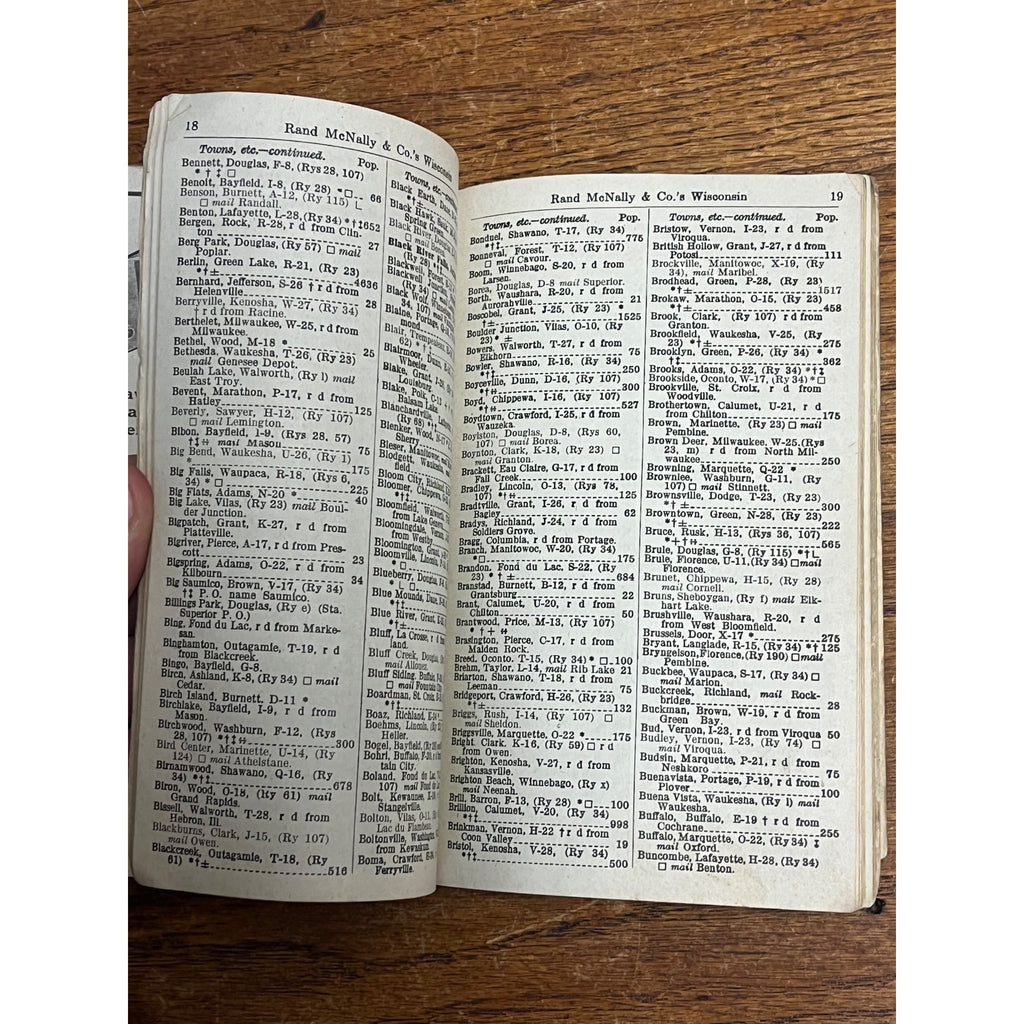 18
Rand McNally & Co.'s Wisconsin
Towns, etc.—continued. Pop.
Bennett, Douglas, F-8, (Rys 28, 107)
* † ‡ □
Benoit, Bayfield, I-8, (Ry 28) *□ 66
Benson, Burnett, A-12, (Ry 115) L
□ mail Randall.
Benton, Lafayette, L-28, (Ry 34) *†‡652
Bergen, Rock, R-28, r d from Clin-
ton 27
Berg Park, Douglas, (Ry 57) □ mail
Poplar.
Berlin, Green Lake, R-21, (Ry 23)
*†± 4636
Bernhard, Jefferson, S-26 † r d from
Helenville.
Berryville, Kenosha, W-27, (Ry 34) 28
† r d from Racine.
Berthelet, Milwaukee, W-25, r d from
Milwaukee.
Bethel, Wood, M-18 *
Bethesda, Waukesha, T-26, (Ry 23) 25
mail Genesee Depot.
Beulah Lake, Walworth, (Ry l) mail
East Troy.
Bevent, Marathon, P-17, r d from
Hatley 125
Beverly, Sawyer, H-12, (Ry 107)
□ mail Lemington.
Bibon, Bayfield, I-9, (Rys 28, 57)
†‡ mail Mason 75
Big Bend, Waukesha, U-26, (Ry 1)
* 175
Big Falls, Waupaca, R-18, (Rys 6,
34) * □ 225
Big Flats, Adams, N-20 * 40
Big Lake, Vilas, (Ry 23) mail Boul-
der Junction.
Bigpatch, Grant, K-27, r d from
Platteville.
Bigriver, Pierce, A-17, r d from Pres-
cott 23
Bigspring, Adams, O-22, r d from
Kilbourn 34
Big Suamico, Brown, V-17, (Ry 34)
†‡ P.O. name Suamico.
Billings Park, Douglas, (Ry e) (Sta.
Superior P. O.)
Bing, Fond du Lac, r d from Marke-
san.
Binghamton, Outagamie, T-19, r d
from Blackcreek.
Bingo, Bayfield, G-8.
Birch, Ashland, K-8, (Ry 34) □ mail
Cedar.
Birch Island, Burnett, D-11 *
Birchlake, Bayfield, I-9, r d from
Mason.
Birchwood, Washburn, F-12, (Rys
28, 107) *†‡ 300
Bird Center, Marinette, U-14, (Ry
124) □ mail Athelstane.
Birnamwood, Shawano, Q-16, (Ry
34) *†‡ 678
Biron, Wood, O-18, (Ry 61) mail
Grand Rapids.
Bissell, Walworth, T-28, r d from
Hebron, Ill.
Blackburns, Clark, J-15, (Ry 107)
mail Owen.
Blackcreek, Outagamie, T-18, (Ry
61) *†± 516
Towns, etc.—continued.
Black Earth, Dane,
Black Hawk,
Spring Green
Black River, Douglas
□ mail
Black River Falls,
(Ry 28) *†
Blackwell, Forest,
Blackwell
Black Wolf,
34, 107)
Blaine, Portage,
mond
Blair, Trempealeau,
62) * †
Blairmoor, Dunn,
Wheeler.
Blake, Grant,
Louisburg.
Blake, Polk,
Balsam Lake
Blanchardville,
(Ry 68) *†
Blenker, Wood,
Sherry
Blieser, Manitowoc,
Blodgett, Waukesha,
field
Bloom City, Richland,
Bloomer, Chippewa,
*†‡
Bloomfield, Walworth,
from Lake Geneva
Bloomingdale, Vernon,
from Westby
Bloomington, Grant,
Bloomville, Lincoln,
Blueberry, Douglas,
Blue Mounds, Dane,
*†‡
Blue River, Grant,
*†±
Bluff, La Crosse,
land.
Bluff Creek, Douglas,
mail Allouez.
Bluff Siding, Buffalo,
□ mail Fountain City
Boardman, St. Croix,
*†‡
Boaz, Richland,
Boehms, Lincoln,
Heller.
Bogel, Bayfield,
Bohri, Buffalo,
tain City.
Boland, Fond du Lac,
107) mail
Bolt, Kewaunee,
Stangelville.
Bolton, Vilas, O-11,
Lac du Flambeau.
Boltonville, Washington,
from Kewaskum
Boma, Crawford,
Ferryville.
Rand McNally & Co.'s Wisconsin 19
Towns, etc.—continued. Pop.
Bonduel, Shawano, T-17, (Ry 34)
*†‡ 775
Bonneval, Forest, T-12, (Ry 107)
□ mail Cavour.
Boom, Winnebago, S-20, r d from
Larsen.
Borea, Douglas, D-8 mail Superior.
Borth, Waushara, R-20, r d from
Aurorahville 21
Boscobel, Grant, J-25, (Ry 23) *
†± 1525
Boulder Junction, Vilas, O-10, (Ry
23) *†‡
Bowers, Walworth, T-27, r d from
Elkhorn 75
Bowler, Shawano, R-16, (Ry 34)
*†‡ 250
Boyceville, Dunn, D-16, (Ry 107)
*† 300
Boyd, Chippewa, I-16, (Ry 107)
*† 527
Boydtown, Crawford, I-25, r d from
Wauzeka.
Boylston, Douglas, D-8, (Rys 60,
107) □ mail Borea.
Boynton, Clark, K-18, (Ry 23) □
mail Granton.
Brackett, Eau Claire, G-17, r d from
Fall Creek 100
Bradley, Lincoln, O-13, (Rys 78,
107) *† 125
Bradtville, Grant, I-26, r d from
Bagley 62
Bradys, Richland, J-24, r d from
Soldiers Grove.
Bragg, Columbia, r d from Portage.
Branch, Manitowoc, W-20, (Ry 34)
*□ 175
Brandon, Fond du Lac, S-22, (Ry
23) *†± 684
Branstad, Burnett, B-12, r d from
Grantsburg 22
Brant, Calumet, U-20, r d from
Chilton 50
Brantwood, Price, M-13, (Ry 107)
*†
Brasington, Pierce, C-17, r d from
Malden Rock.
Breed, Oconto, T-15, (Ry 34) *□ 100
Brehm, Taylor, L-14, mail Rib Lake 21
Briarton, Shawano, T-18, r d from
Leeman 75
Bridgeport, Crawford, H-26, (Ry 23)
*†± 132
Briggs, Rush, I-14, (Ry 107) □
mail Sheldon.
Briggsville, Marquette, O-22 * 175
Bright, Clark, K-16, (Ry 59) □ r d
from Owen.
Brighton, Kenosha, V-27, r d from
Kansasville.
Brighton Beach, Winnebago, (Ry x)
mail Neenah.
Brill, Barron, F-13, (Ry 28) *□ 100
Brillion, Calumet, V-20, (Ry 34)
*†‡ 998
Brinkman, Vernon, H-22 † r d from
Coon Valley 19
Bristol, Kenosha, V-28, (Ry 34)
*†‡ 500
Towns, etc.—continued. Pop.
Bristow, Vernon, I-23, r d from
Viroqua.
British Hollow, Grant, J-27, r d from
Potosi 111
Brockville, Manitowoc, X-19, (Ry
34), mail Maribel.
Brodhead, Green, P-28, (Ry 23)
*†± 1517
Brokaw, Marathon, O-15, (Ry 23)
*†± 458
Brook, Clark, (Ry 107) r d from
Granton.
Brookfield, Waukesha, V-25, (Ry
23) *†± 275
Brooklyn, Green, P-26, (Ry 34) *
†‡ 362
Brooks, Adams, O-22, (Ry 34) *†‡
Brookside, Oconto, W-17, (Ry 34) *□
Brookville, St. Croix, r d from
Woodville.
Brothertown, Calumet, U-21, r d
from Chilton 175
Brown, Marinette, (Ry 23) □ mail
Pembine.
Brown Deer, Milwaukee, W-25, (Rys
23, m) r d from North Mil-
waukee 250
Browning, Marquette, Q-22 *
Brownlee, Washburn, G-11, (Ry
107) □ mail Stinnett.
Brownsville, Dodge, T-23, (Ry 23)
*†±
Browntown, Green, N-28, (Ry 23)
*†± 222
Bruce, Rusk, H-13, (Rys 36, 107)
565
Brule, Douglas, G-8, (Ry 115) *†L
Brule, Florence, U-11, (Ry 34) □ mail
Florence.
Brunet, Chippewa, H-15, (Ry 28)
mail Cornell.
Bruns, Sheboygan, (Ry f) mail Elk-
hart Lake.
Brushville, Waushara, R-20, r d
from West Bloomfield.
Brussels, Door, X-17 * 275
Bryant, Langlade, R-15, (Ry 34) *† 125
Bryngelson, Florence, (Ry 190) □ mail
Pembine.
Buckbee, Waupaca, S-17, (Ry 34) □
mail Marion.
Buckcreek, Richland, mail Rock-
bridge 28
Buckman, Brown, W-19, r d from
Green Bay.
Bud, Vernon, I-23, r d from Viroqua 50
Budley, Vernon, I-23, (Ry 74) □
mail Viroqua.
Budsin, Marquette, P-21, r d from
Neshkoro 75
Buenavista, Portage, P-19, r d from
Plover 100
Buena Vista, Waukesha, (Ry i) mail
Waukesha.
Buffalo, Buffalo, E-19 † r d from
Cochrane 255
Buffalo, Marquette, O-22, (Ry 34) ‡
mail Oxford.
Buncombe, Lafayette, H-28, (Ry 34)
□ mail Benton.